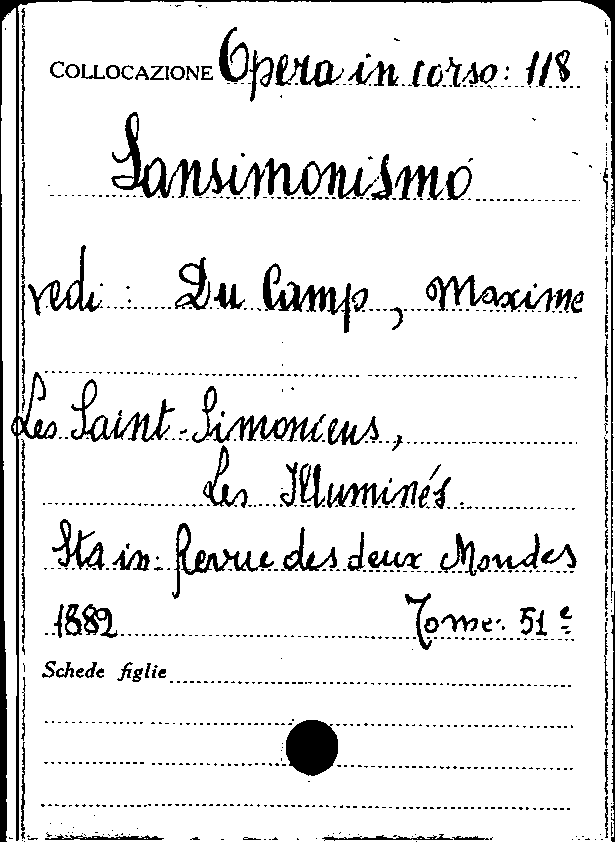 COLLOCAZIONE Opera in corso: 118
Sansimonismo
vedi: Du Camp, Maxime
Les Saint-Simoniens,
Les Illuminés.
Sta in: Revue des deux Mondes
1882 Tome: 51 e
Schede figlie